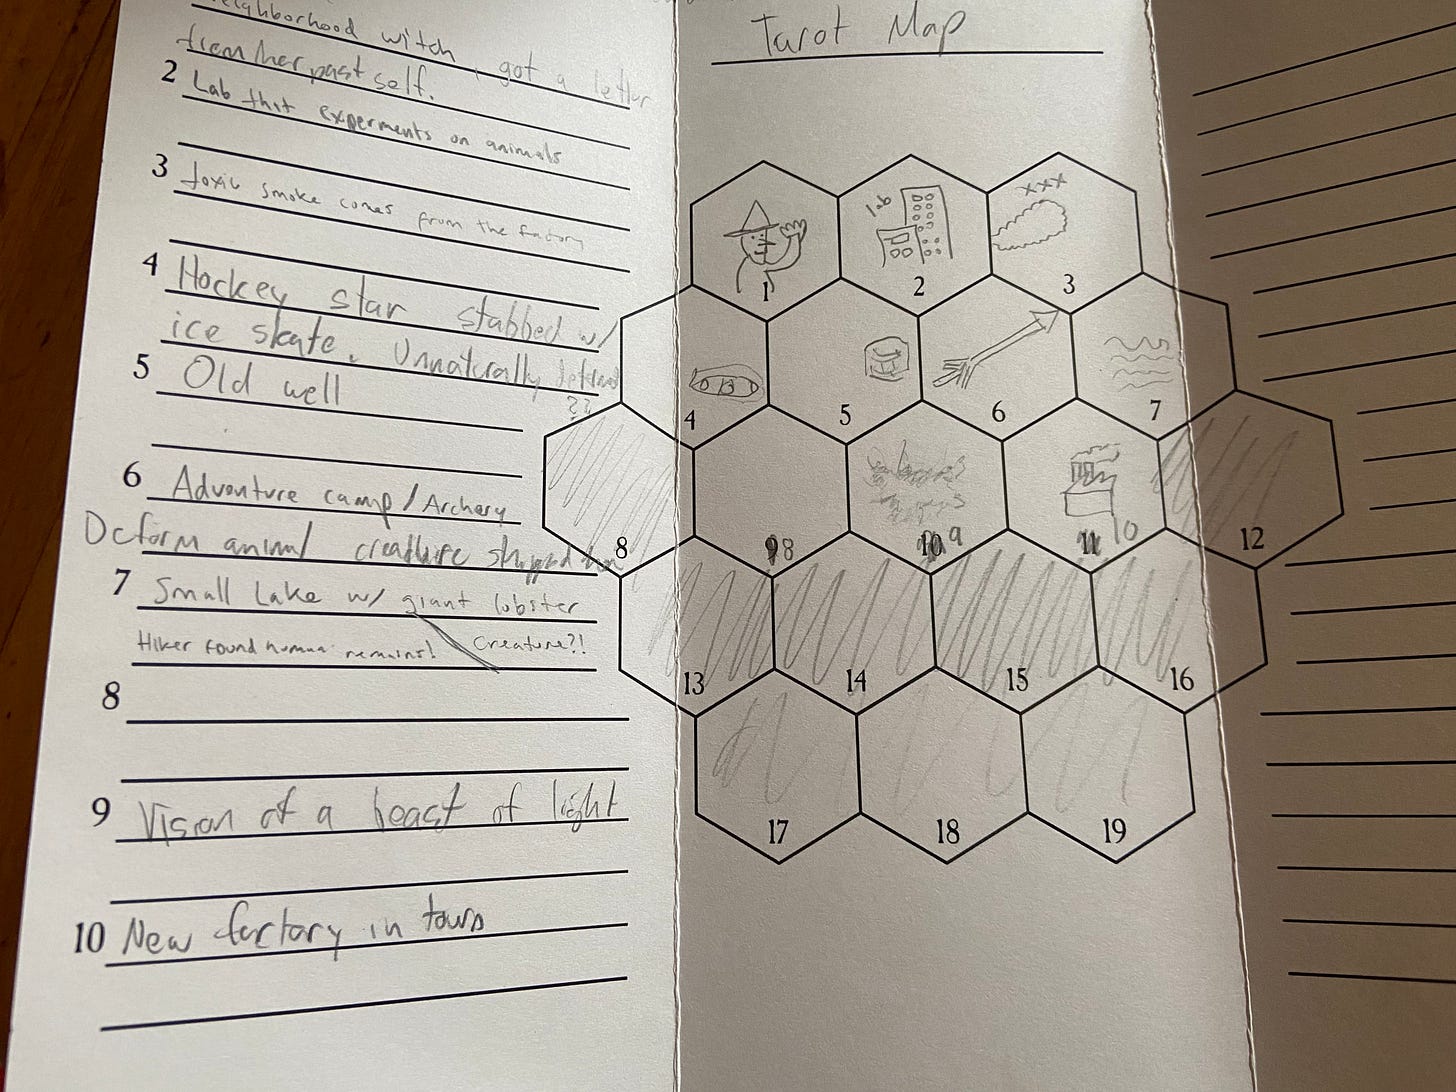 neighborhood witch, got a letter
from her past self.
2 Lab that experments on animals
3 toxic smoke comes from the factory
4 Hockey star stabbed w/
ice skate. Unnaturally
??
5 Old well
6 Adventure camp / Archery
Deform animal creature
7 Small Lake w/ giant lobster
Hiker found human remains! Creature?!
8
9 Vision of a beast of light
10 New factory in town
Tarot Map
Lab
xxx
1 2 3
13
4 5 6 7
8 8 9 10 12
13 14 15 16
17 18 19